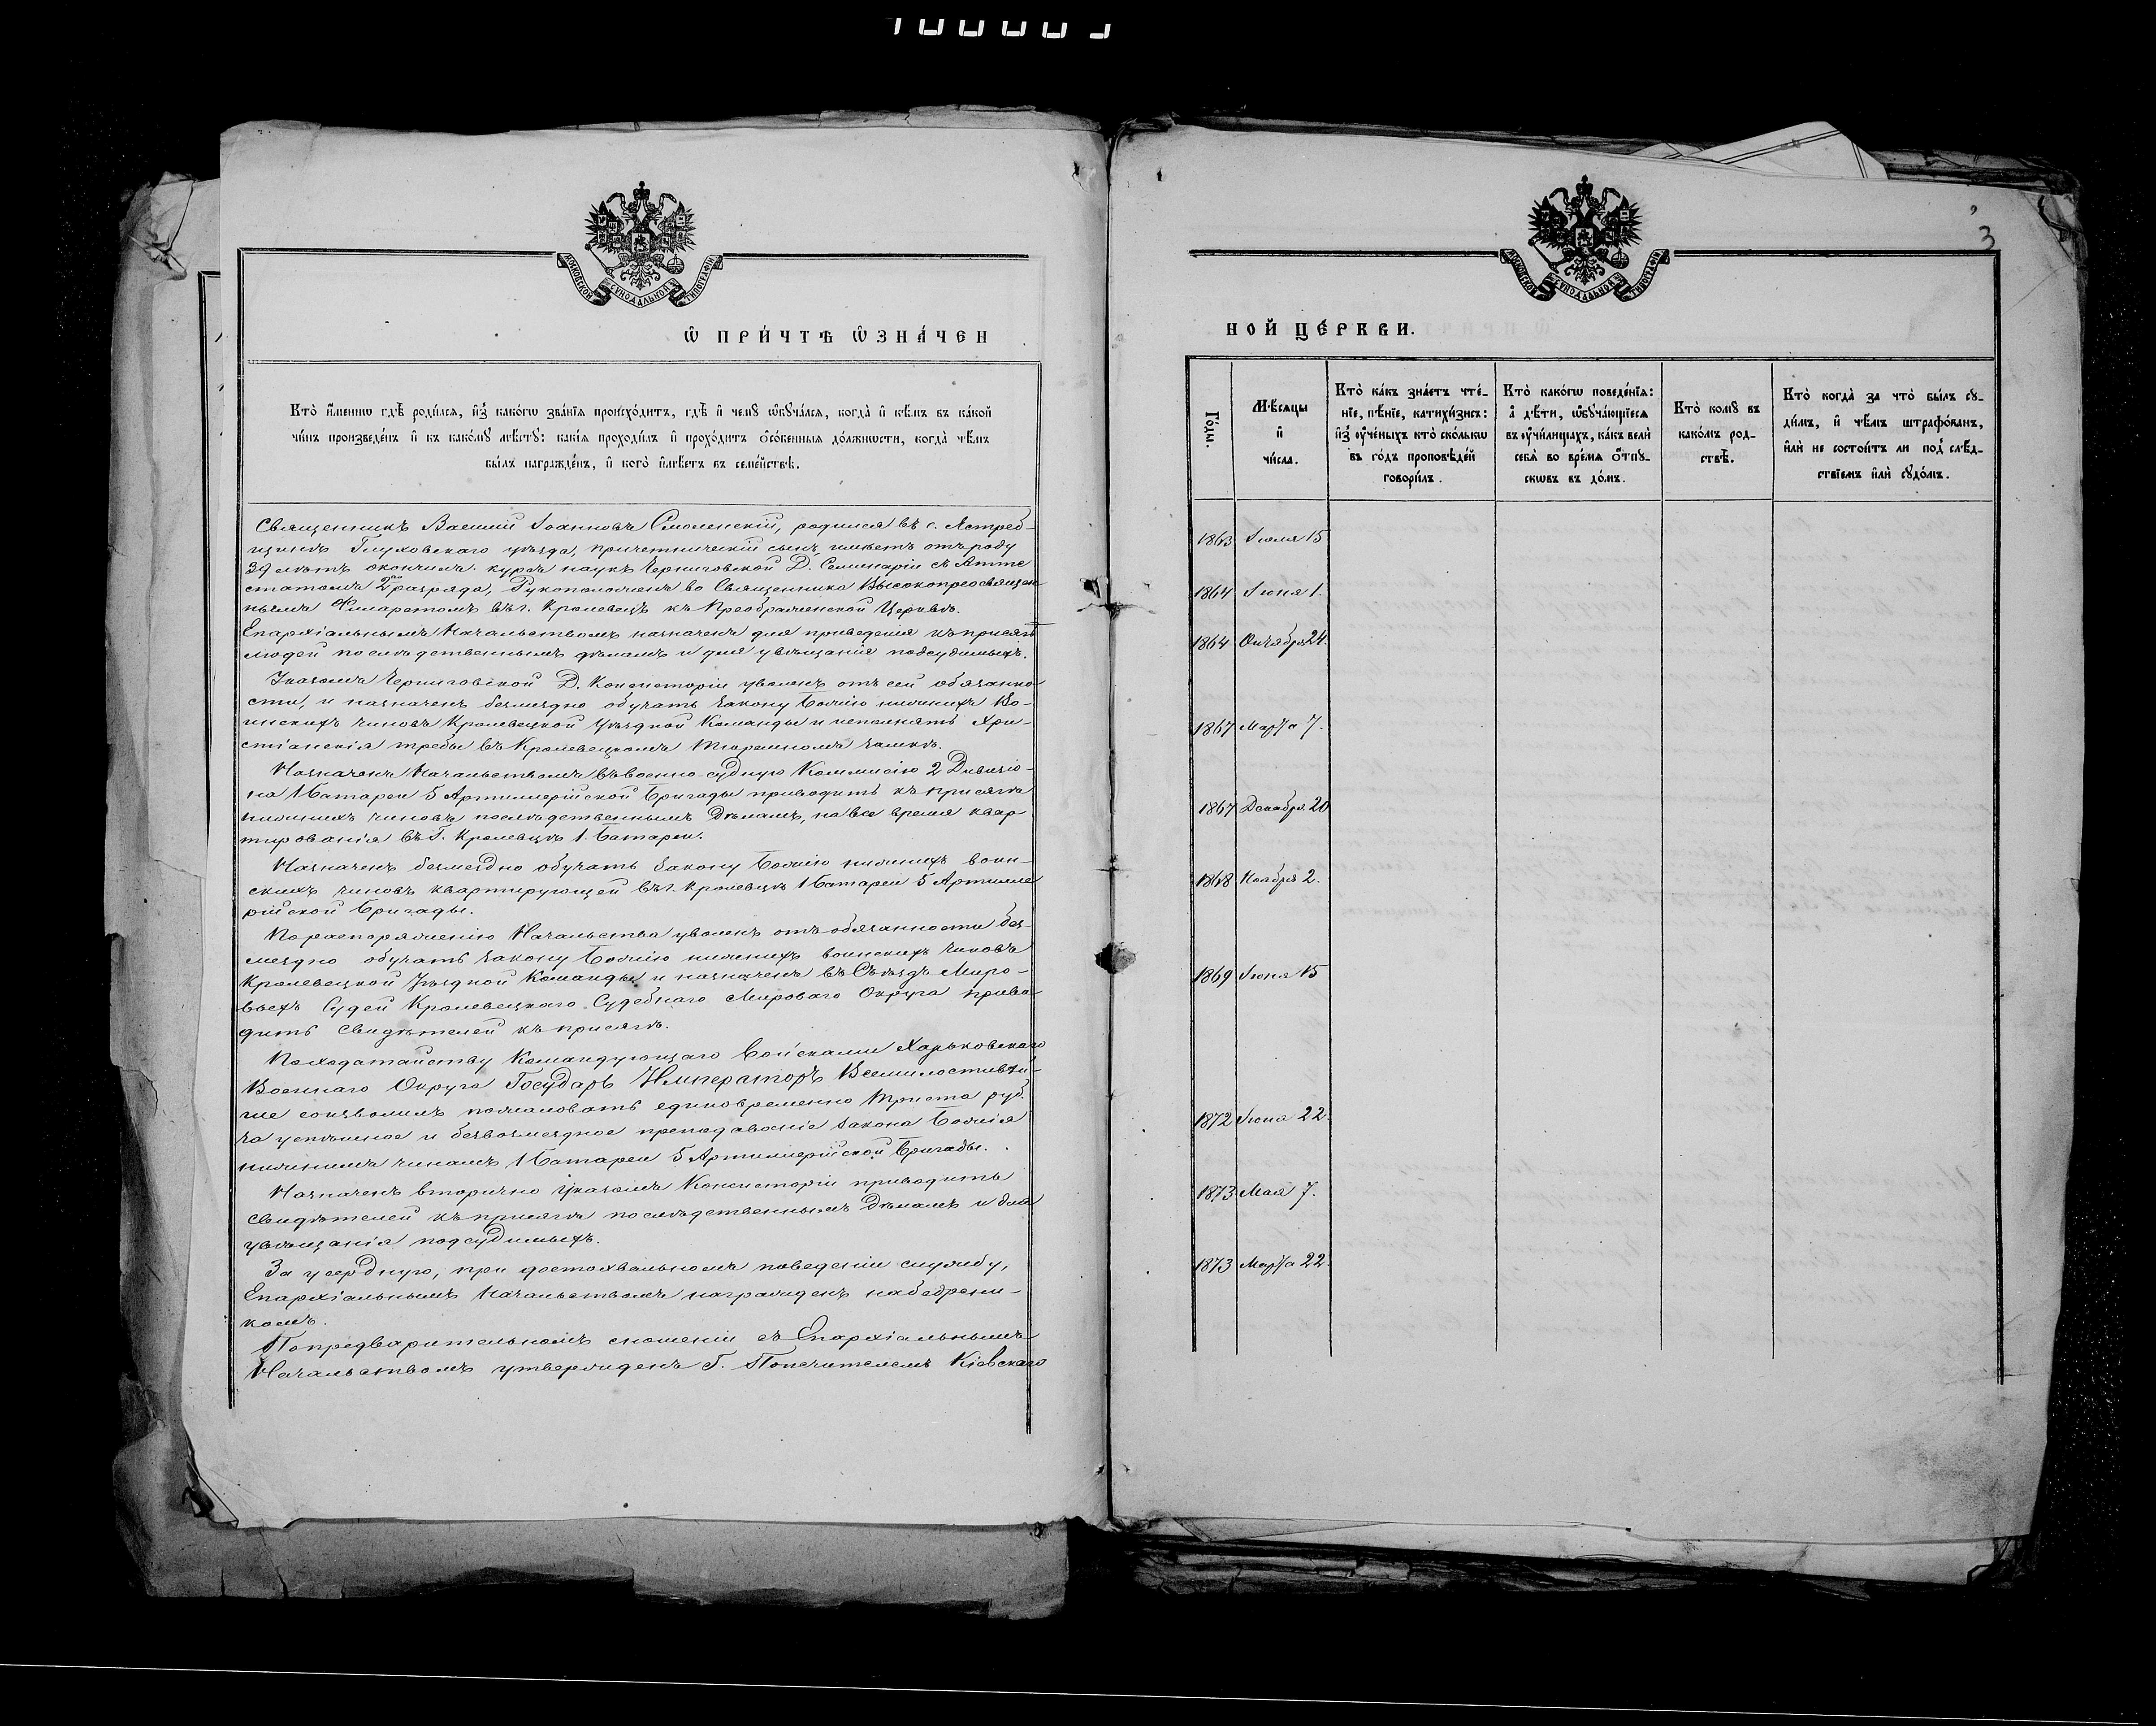 МОСКОВСКОЙ СѴНОДАЛЬНОЙ ТИПОГРАФІИ
Ѡ ПРИ́ЧТѢ ѠЗНА́ЧЕН
Кто̀ и҆́менно гдѣ̀ роди́лсѧ, и҆з̾ како́гѡ зва́нїѧ происхо́дитъ, гдѣ̀ и҆ чемꙋ̀ ѡ҆бꙋча́лсѧ, когда̀ и҆ кѣ́мъ въ ка́кой
чи́нъ произведе́нъ и҆ къ како́мꙋ мѣ́стꙋ: какі́ѧ проходи́лъ и҆ прохо́дитъ ѻ҆со́бенныѧ до́лжности, когда̀ чѣ́мъ
бы́лъ награжде́нъ, и҆ кого̀ и҆мѣ́етъ въ семе́йствѣ.
Священникъ Василій Іоанновъ Смоленскій, родился въ с. Ястреб-
щинѣ Глуховскаго уѣзда, причетническій сынъ, имѣетъ отъ роду
39 лѣтъ окончилъ курсъ наукъ Черниговской Д. Семинаріи съ Атте
статомъ 2го разряда, Рукоположенъ во Священника Высокопреосвящен
нымъ Филаретомъ въ г. Кролевецъ къ Преображенской Церквѣ.
Епархіальнымъ Начальствомъ назначенъ для приведенія къ присягѣ
людей по слѣдственнымъ дѣламъ и для увѣщанія подсудимыхъ.
Указомъ Черниговской Д. Консисторіи уволенъ отъ сей обязанно
сти, и назначенъ безмездно обучать Закону Божію нижнихъ Во-
инскихъ чиновъ Кролевецкой Уѣздной Команды и исполнять Хри-
стіанскія требы въ Кролевецкомъ Тюремномъ замкѣ.
Назначенъ Начальствомъ въ военно-судную Коммисію 2 Дивизіо-
на 1 Батареи 5 Артиллерійской Бригады приводить къ присягѣ
нижнихъ чиновъ по слѣдственнымъ Дѣламъ, на все время квар
тированія въ г. Кролевцѣ 1. Батареи.
Назначенъ безмездно обучать Закону Божію нижнихъ воин-
скихъ чиновъ квартирующей въ г. Кролевцѣ 1 Батареи 5 Артилле
рійской Бригады.
По распоряженію Начальства уволенъ отъ обязанности без-
мездно обучать Закону Божію нижнихъ воинскихъ чиновъ
Кролевецкой Уѣздной Команды и назначенъ въ Съѣздъ Миро-
выхъ Судей Кролевецкаго Судебнаго Мироваго Округа приво-
дить Свидѣтелей къ присягѣ.
По ходатайству Командующаго Войсками Харьковскаго
Военнаго Округа Государь Императоръ Всемилостивѣй-
ше соизволилъ пожаловать единовременно триста руб.
за успѣшное и безвозмездное преподаваніе Закона Божія
нижнимъ чинамъ 1 Батареи 5 Артиллерійской Бригады.
Назначенъ вторично Указомъ Консисторіи приводить
свидѣтелей къ присягѣ по слѣдственнымъ Дѣламъ и для
увѣщанія подсудимыхъ.
За усердную, при достохвальномъ поведеніи службу,
Епархіальнымъ Начальствомъ награжденъ набедрени-
комъ.
По предварительномъ сношеніи съ Епархіальнымъ
Начальствомъ утвержденъ Г. Попечителемъ Кіевскаго
3
МОСКОВСКОЙ СѴНОДАЛЬНОЙ ТИПОГРАФІИ
НОЙ ЦЕ́РКВИ.
Го́ды.
Мѣ́сѧцы
и҆
чи́сла.
Кто̀ ка́къ зна́етъ чте́-
нїе, пѣ́нїе, катихи́зисъ:
и҆з̾ ᲂу҆че́ныхъ кто̀ ско́лькѡ
въ го́дъ проповѣ́дей
говори́лъ.
Кто̀ како́гѡ поведе́нїѧ:
а҆ дѣ́ти, ѡ҆бꙋча́ющїесѧ
въ ᲂу҆чи́лищахъ, ка́къ велѝ
себѧ̀ во вре́мѧ ѻ҆тпꙋ-
скѡвъ въ до́мъ.
Кто̀ комꙋ̀ въ
како́мъ род-
ствѣ̀.
Кто̀ когда̀ за что̀ бы́лъ сꙋ-
ди́мъ, и҆ чѣ́мъ штрафо́ванъ,
и҆лѝ не состои́тъ ли под̾ слѣ́д-
ствїемъ и҆лѝ сꙋдо́мъ.
1863 Іюля 15
1864 Іюня 1.
1864 Октября 24.
1867 Марта 7.
1867 Декабря 20
1868 Ноября 2.
1869 Іюня 15
1872 Іюня 22.
1873 Мая 7.
1873 Марта 22.